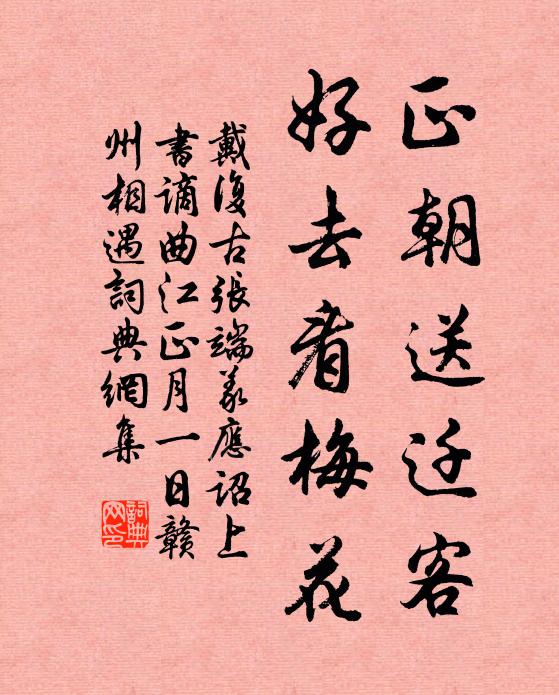 正朝送迁客
好去看梅花
戴復古張端義應詔上
書謫曲江正月一日赣
州相遇詞典網集
詞典網印